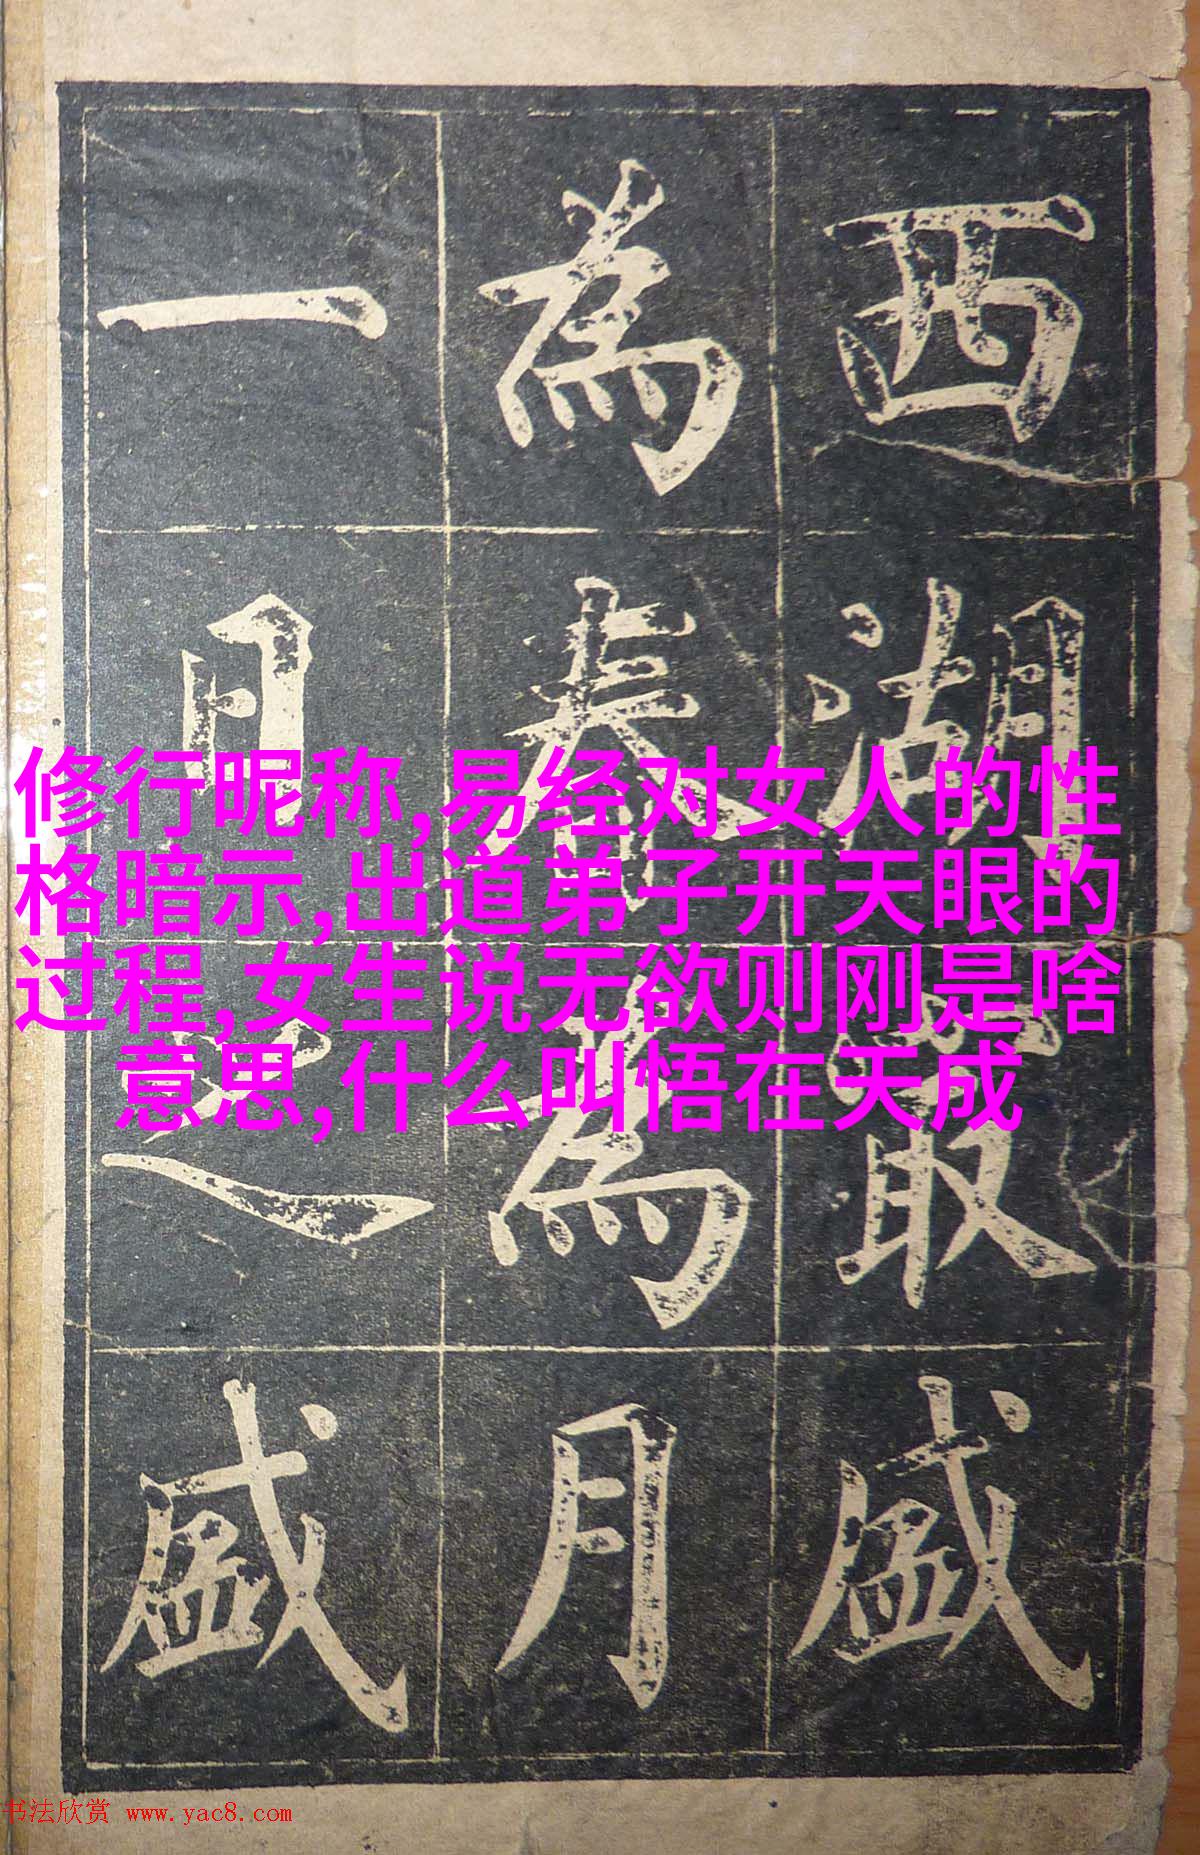 西湖最盛
為春為月
一日之盛
修行昵称,易经对女人的性
格暗示,出道弟子开天眼的
过程,女生说无欲则刚是啥
意思,什么叫悟在天成
书法欣赏 www.yac8.com